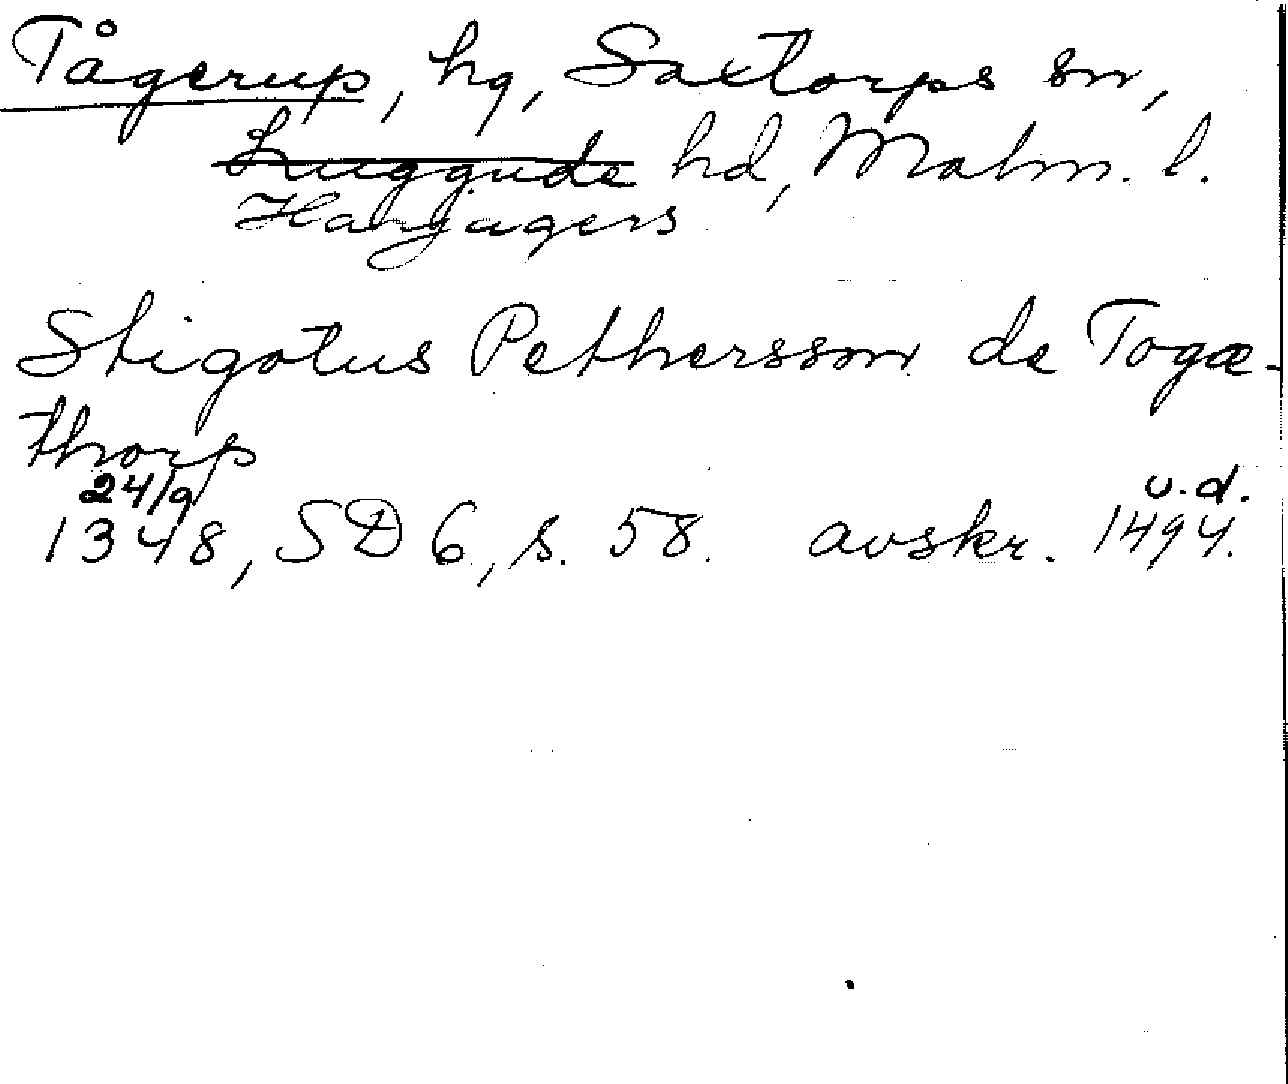 Tågerup, hg, Saxtorps sn,
Luggude hd, Malm. l.
Harjagers
Stigotus Pethersson de Togæ-
thorp
24/9 u.d.
1348, SD 6, s. 58. avskr. 1494.